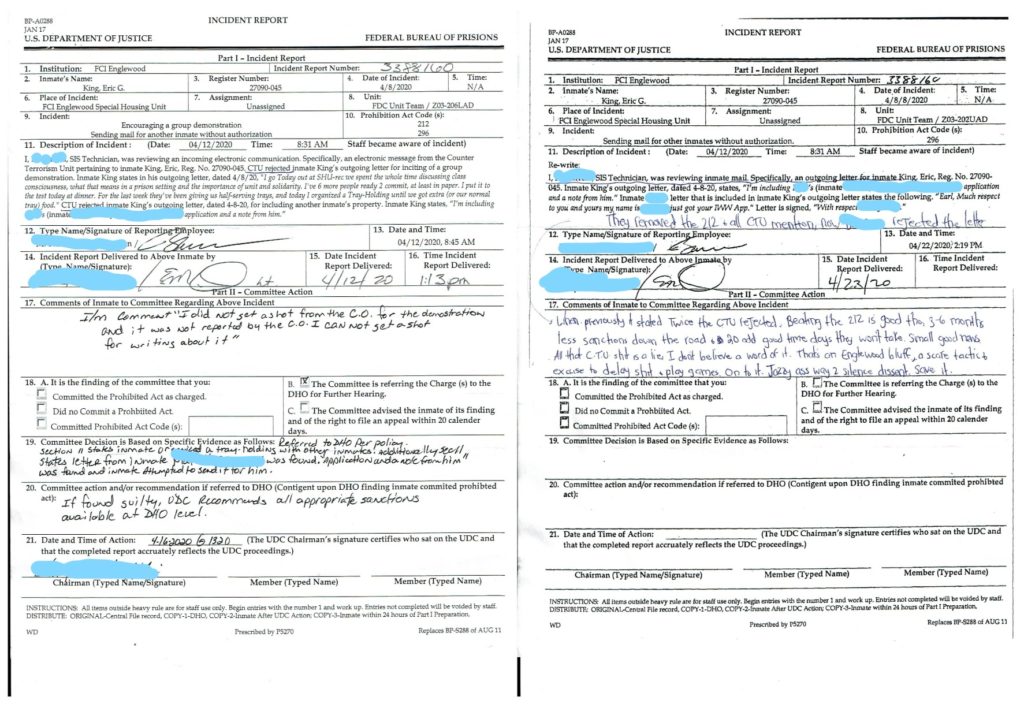 BP-A0288
JAN 17
U.S. DEPARTMENT OF JUSTICE
INCIDENT REPORT
FEDERAL BUREAU OF PRISIONS
Part I – Incident Report
1. Institution: FCI Englewood
Incident Report Number: 3388160
2. Inmate's Name:
King, Eric G.
3. Register Number:
27090-045
4. Date of Incident:
4/8/2020
5. Time:
N/A
6. Place of Incident:
FCI Englewood Special Housing Unit
7. Assignment:
Unassigned
8. Unit:
FDC Unit Team / Z03-206LAD
9. Incident:
Encouraging a group demonstration
Sending mail for another inmate without authorization
10. Prohibition Act Code (s):
212
296
11. Description of Incident: (Date: 04/12/2020 Time: 8:31 AM Staff became aware of incident)
I, SIS Technician, was reviewing an incoming electronic communication. Specifically, an electronic message from the Counter
Terrorism Unit pertaining to inmate King, Eric, Reg. No. 27090-045, CTU rejected inmate King's outgoing letter for inciting of a group
demonstration. Inmate King states in his outgoing letter, dated 4/8/20, "I go Today out at SHU-rec we spent the whole time discussing class
consciousness, what that means in a prison setting and the importance of unit and solidarity. I've 6 more people ready 2 commit, at least in paper. I put it to
the test today at dinner. For the last week they've been giving us half-serving trays, and today I organized a Tray-Holding until we got extra (for our normal
tray) food." CTU rejected inmate King's outgoing letter, dated 4-8-20, for including another inmate's property. Inmate King states, "I'm including
s (inmate application and a note from him."
12. Type Name/Signature of Reporting Employee:
13. Date and Time:
04/12/2020, 8:45 AM
14. Incident Report Delivered to Above Inmate by
(Type Name/Signature):
15. Date Incident
Report Delivered:
4/12/20
16. Time Incident
Report Delivered:
1:13pm
Part II – Committee Action
17. Comments of Inmate to Committee Regarding Above Incident
I/m comment "I did not get a shot from the C.O. for the demostration
and it was not reported by the C.O. I CAN NOT get a shot
for writing about it"
18. A. It is the finding of the committee that you:
Committed the Prohibited Act as charged.
Did no Commit a Prohbiited Act.
Committed Prohibited Act Code (s):
B. X The Committee is referring the Charge (s) to the
DHO for Further Hearing.
C. The Committee advised the inmate of its finding
and of the right to file an appeal within 20 calender
days.
19. Committee Decision is Based on Specific Evidence as Follows: Referred to DHO Per policy.
section 11 states inmate organized a tray-holding with other inmates. additionally sec 11
states letter from inmate was found. "Application and a note from him"
was found and inmate attempted to send it for him.
20. Committee action and/or recommendation if referred to DHO (Contigent upon DHO finding inmate commited prohibted
act):
If found guilty, UDC Recommends all appropriate sanctions
available at DHO level.
21. Date and Time of Action: 4-16-2020 @ 1320 (The UDC Chairman's signature certifies who sat on the UDC and
that the completed report accruately reflects the UDC proceedings.)
Chairman (Typed Name/Signature)
Member (Typed Name)
Member (Typed Name)
INSTRUCTIONS: All items outside heavy rule are for staff use only. Begin entries with the number 1 and work up. Entries not completed will be voided by staff.
DISTRIBUTE: ORIGINAL-Central File record, COPY-1-DHO, COPY-2-Inmate After UDC Action; COPY-3-Inmate within 24 hours of Part I Preparation,
WD
Prescribed by P5270
Replaces BP-S288 of AUG 11
BP-A0288
JAN 17
U.S. DEPARTMENT OF JUSTICE
INCIDENT REPORT
FEDERAL BUREAU OF PRISIONS
Part I – Incident Report
1. Institution: FCI Englewood
Incident Report Number: 3388160
2. Inmate's Name:
King, Eric G.
3. Register Number:
27090-045
4. Date of Incident:
4/8/8/2020
5. Time:
N/A
6. Place of Incident:
FCI Englewood Special Housing Unit
7. Assignment:
Unassigned
8. Unit:
FDC Unit Team / Z03-202UAD
9. Incident:
Sending mail for other inmates without authorization.
10. Prohibition Act Code (s):
296
11. Description of Incident: (Date: 04/12/2020 Time: 8:31 AM Staff became aware of incident)
Re-write:
I, SIS Technician, was reviewing inmate mail. Specifically, an outgoing letter for inmate King, Eric, Reg. No. 27090-
045. Inmate King's outgoing letter, dated 4-8-20, states, "I'm including 's (inmate application
and a note from him." Inmate letter that is included in inmate King's outgoing letter states the following. "Earl, Much respect
to you and yours my name is just got your IWW App." Letter is signed, "With respect
They removed the 212 + all CTU mention, now rejected the letter
12. Type Name/Signature of Reporting Employee:
13. Date and Time:
04/22/2020; 2:19 PM
14. Incident Report Delivered to Above Inmate by
(Type Name/Signature):
15. Date Incident
Report Delivered:
4/23/20
16. Time Incident
Report Delivered:
Part II – Committee Action
17. Comments of Inmate to Committee Regarding Above Incident
When previously it stated Twice the CTU rejected. Beating the 212 is good tho, 3-6 months
less sanctions down the road + 20 add good time days they wont take. Small good news.
All that CTU shit is a lie, I don't believe a word of it. Thats on Englewood bluff, a scare tactic +
excuse to delay shit + play games. On to it. Jazzy ass way 2 silence dissent. Save it.
18. A. It is the finding of the committee that you:
Committed the Prohibited Act as charged.
Did no Commit a Prohbiited Act.
Committed Prohibited Act Code (s):
B. The Committee is referring the Charge (s) to the
DHO for Further Hearing.
C. The Committee advised the inmate of its finding
and of the right to file an appeal within 20 calender
days.
19. Committee Decision is Based on Specific Evidence as Follows:
20. Committee action and/or recommendation if referred to DHO (Contigent upon DHO finding inmate commited prohibted
act):
21. Date and Time of Action: (The UDC Chairman's signature certifies who sat on the UDC and
that the completed report accruately reflects the UDC proceedings.)
Chairman (Typed Name/Signature)
Member (Typed Name)
Member (Typed Name)
INSTRUCTIONS: All items outside heavy rule are for staff use only. Begin entries with the number 1 and work up. Entries not completed will be voided by staff.
DISTRIBUTE: ORIGINAL-Central File record, COPY-1-DHO, COPY-2-Inmate After UDC Action; COPY-3-Inmate within 24 hours of Part I Preparation,
WD
Prescribed by P5270
Replaces BP-S288 of AUG 11